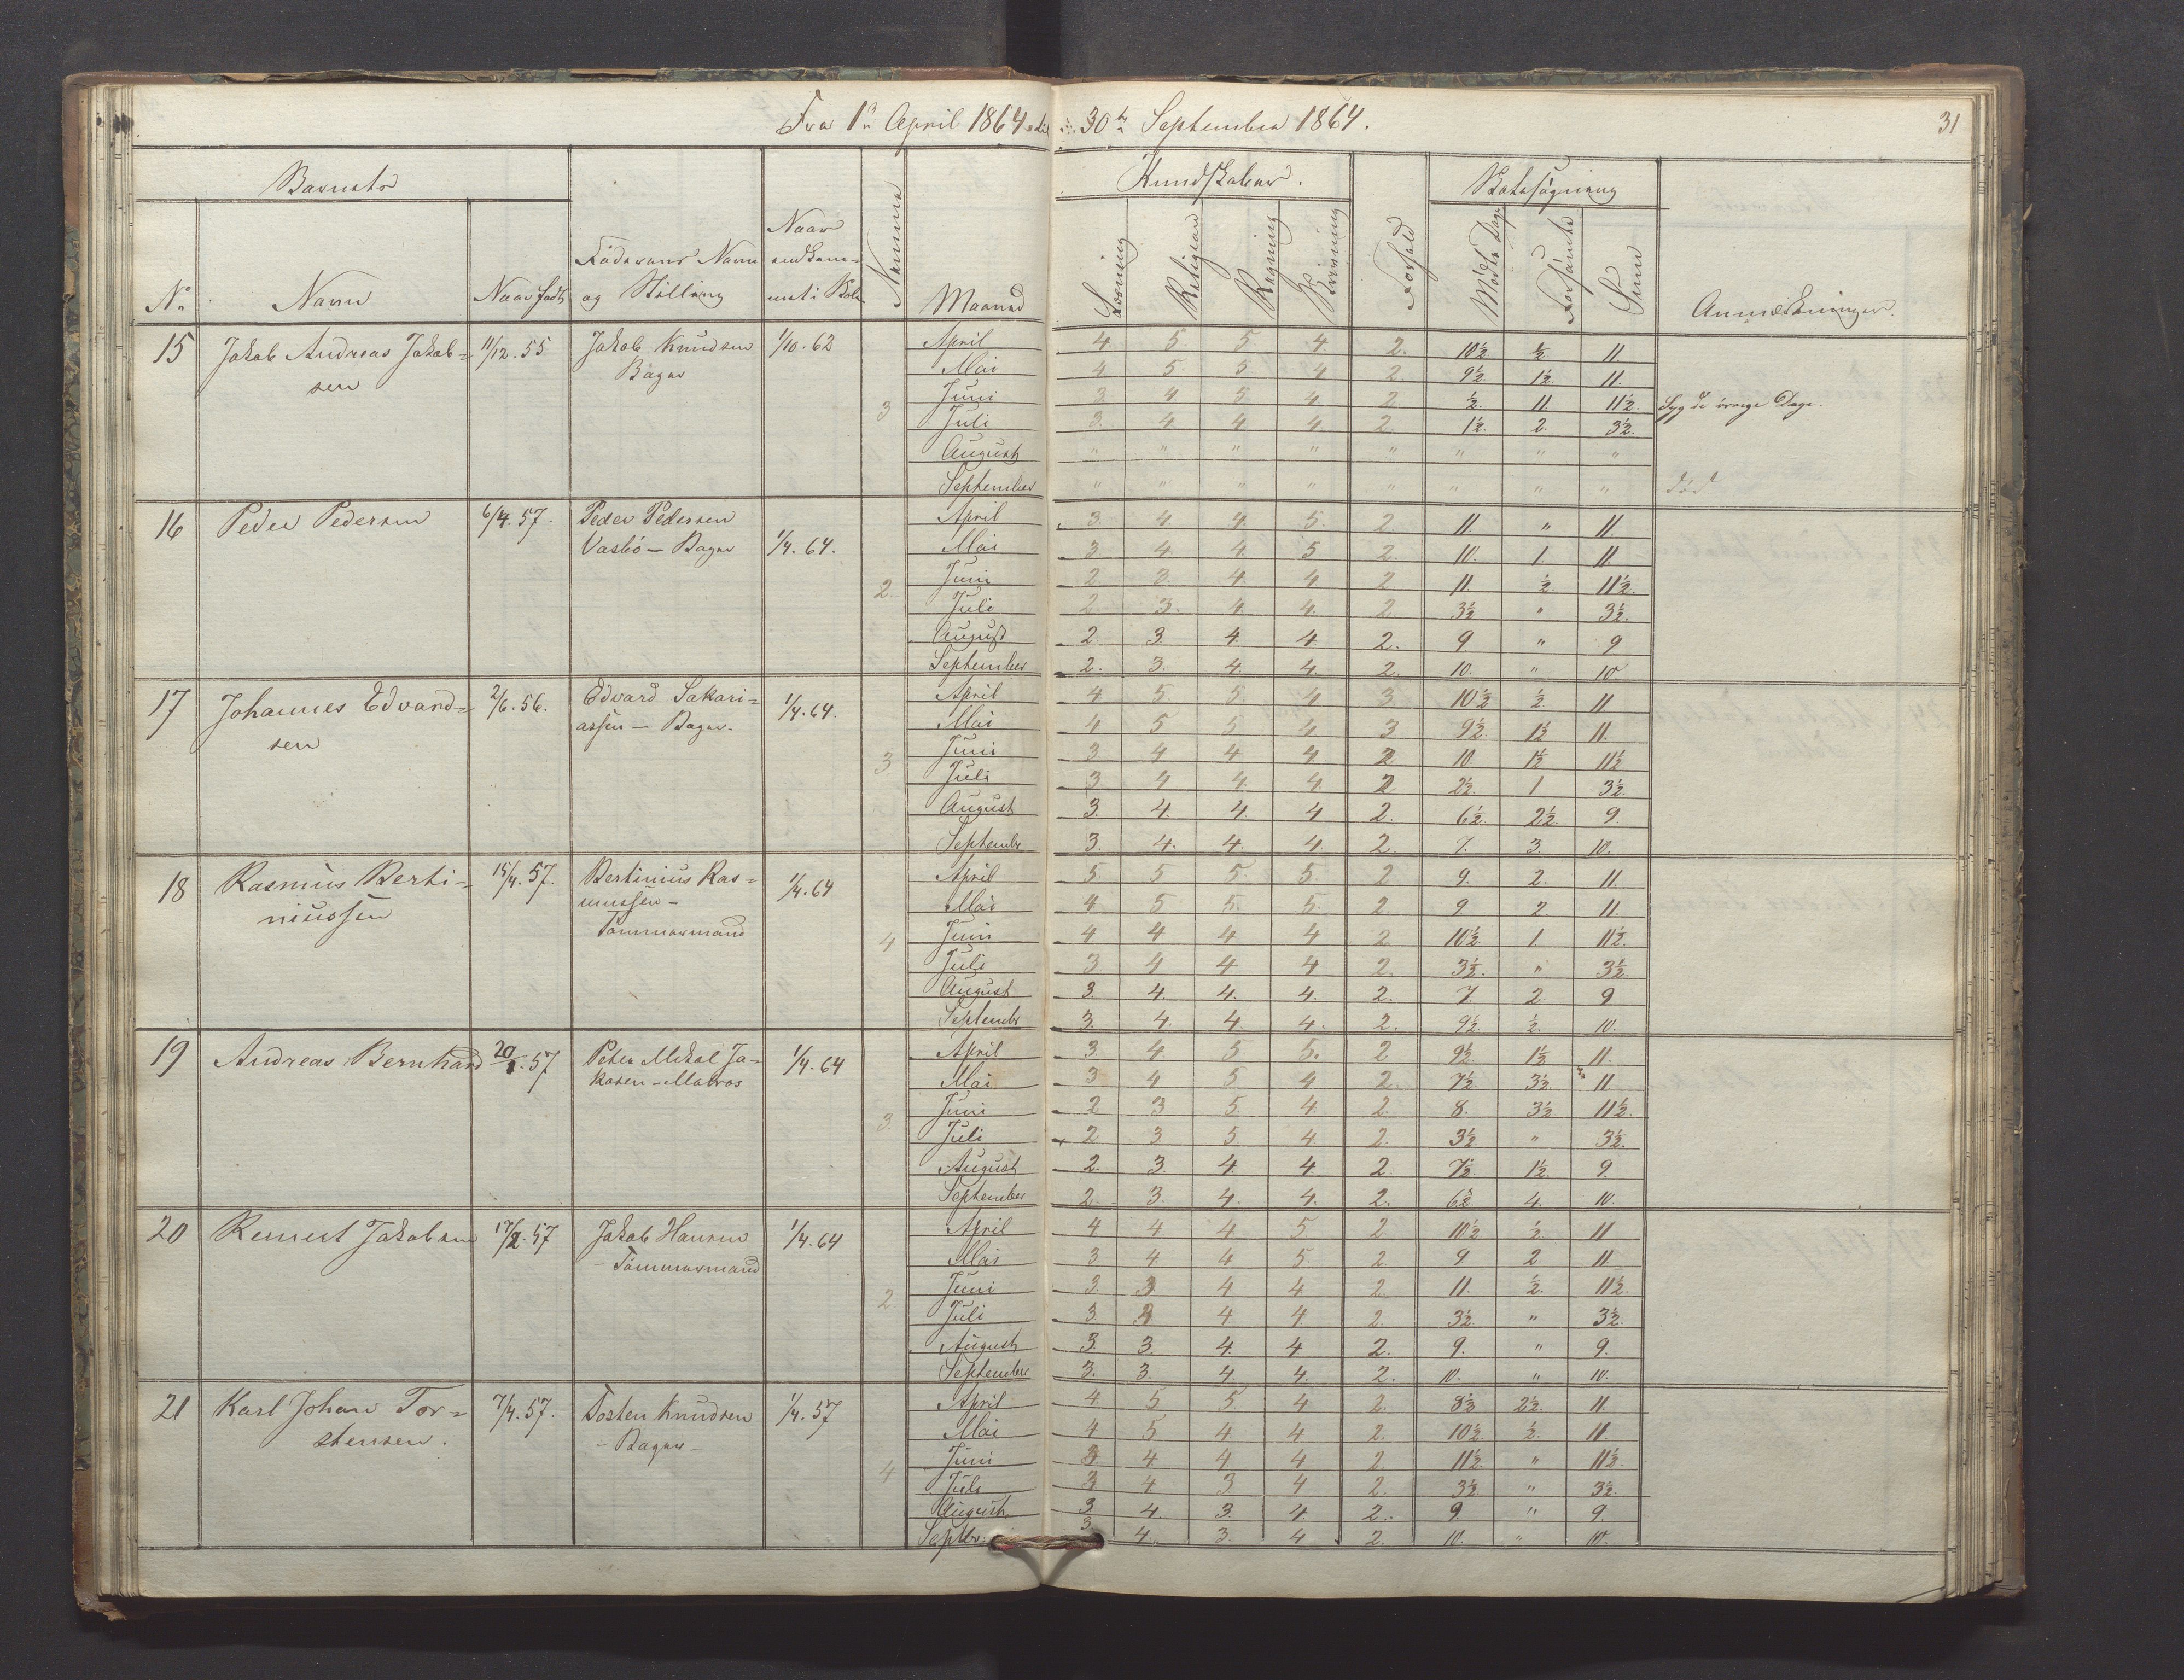 Fra 1ste April 1864 til 30te September 1864.
31
Barnets
Kundskaber.
Skolesøgning
No
Navn
Naar født
Forældrenes Navn og Stilling
Naar indkommet i Skolen
Nummer
Maaned
Læsning
Religion
Regning
Skrivning
Forhold
Mødte Dage
Forsømte
Sum
Anmærkninger.
15 Jakob Andreas Jakob= 11/12.55 Jakob Knudsen 1/10.62 3
sen Bøger
April 4. 5. 5 4. 2. 10½ ½ 11.
Mai 4 5. 5 4 2. 9½. 1½. 11.
Juni 3. 4. 5. 4. 2. ½. 11. 11½. Syg de øvrige Dage.
Juli 3. 4 4. 4. 2. 1½. 2. 3½.
August " " " " " " " "
September " " " " " " " " død
16 Peder Pedersen 6/4.57. Peder Pedersen 1/4.64. 2.
Vasbö - Bøger
April 3. 4. 4. 5. 2 11. " 11.
Mai 3 4 4. 5 2. 10. 1. 11.
Juni 2 3. 4. 4 2 11. ½. 11½.
Juli 2. 3. 4. 4. 2. 3½ " 3½.
August 2. 3. 4. 4. 2. 9 " 9
September 2. 3. 4. 4 2. 10. " 10
17 Johannes Edvard= 2/6.56. Edvard Sakari= 1/4.64. 3
sen assen - Bøger.
April 4 5. 5. 4 3. 10½ ½. 11
Mai 4 5 5 4 3 9½. 1½ 11.
Juni 3 4 4 4 2 10. 1½ 11½
Juli 3 4 4. 4. 2 2½. 1 3½.
August 3. 4. 4. 4 2. 6½. 2½. 9.
September 3. 4. 4 4. 2. 7. 3. 10.
18 Rasmus Berti= 15/4.57. Bertinius Ras= 1/4.64 4
niussen mussen -
Tømmermand
April 5. 5 5. 5. 2 9. 2. 11.
Mai 4 5 5. 5. 2. 9 2 11.
Juni 4 4 4 4 2. 10½ 1 11½.
Juli 3 4 4 4 2. 3½. " 3½.
August 3. 4. 4. 4. 2. 7. 2. 9
Septembr 3. 4. 4 4. 2. 9½. ½. 10.
19 Andreas Bernhard 20/1.57 Peter Mikal Ja= 1/4.64 3.
kosen - Matros
April 3. 4. 5 5. 2 9½. 1½ 11.
Mai 3 4 5 4 2. 7½ 3½. 11
Juni 2 3 5. 4 2. 8. 3½ 11½.
Juli 2. 3 5 4 2. 3½. " 3½.
August 2. 3. 4. 4 2. 7½ 1½. 9.
September 2. 3. 4. 4. 2. 6½. 4. 10.
20 Reinert Jakobsen 17/2.57 Jakob Hansen 1/4.64 2
- Tømmermand
April 4 4 4 5 2. 10½ ½ 11
Mai 3. 4 4 5 2. 9 2. 11
Juni 3. 3. 4 4 2. 11. ½. 11½.
Juli 3. 3 4 4 2. 3½. " 3½.
August 3. 3. 4. 4 2. 9. " 9.
September 3. 3. 4. 4. 2. 10. " 10.
21 Karl Johan Tor= 7/4.57. Tosten Knudsen 1/4.57 4
stensen. - Bøger -
April 4. 5 5 4 2. 8½ 2½. 11.
Mai 4 5 4 4 2. 10½. ½. 11.
Juni 3 4 4 4 2. 11½. " 11½.
Juli 3 4 3 4 2. 3½. " 3½.
August 3 4. 3. 4. 2.. 9 " 9.
Septbr. 3. 4. 3. 4 2. 10. " 10.